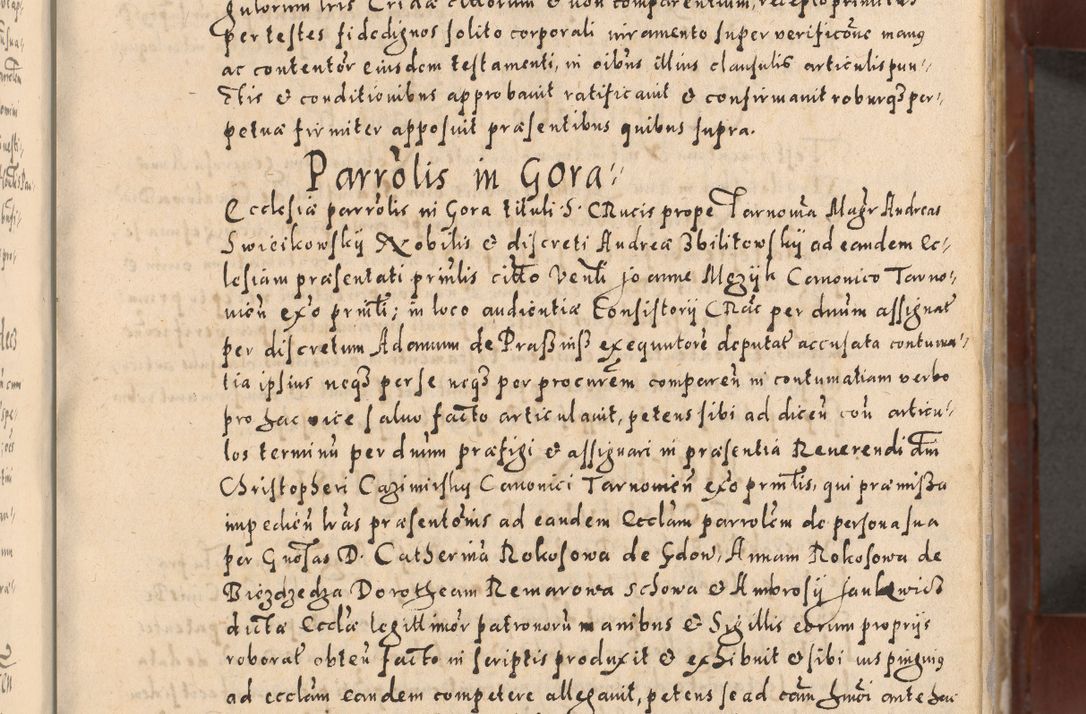 per testes fidedignos solito corporali iuramento super verificãoe manus
ac contentor̃ eiusdem testamenti, in oib̃us illius clausulis articulis pun-
ctis & conditionibus approbauit ratificauit & confirmauit roburq3 per-
petuæ firmiter apposuit præsentibus quibus supra.
Parrõlis in Gora
Ecclesiæ parrõlis in Gora tituli S. CRucis prope Tarnowia Magr̃ Andreas
Swiecikowskÿ Nobilis & discreti Andreæ Zbilitowskÿ ad eandem Ec-
lesiam præsentati prinl̃is citto Venl̃i Joanne Mezÿk Canonico Tarno-
uieñ ex̃o prnt̃i; in loco audientiæ Consistorij CRac̃ per dnũm assignat̃
per discretum Adamum de Praßniß exequutorẽ deputat̃ accusata contuma-
tia ipsius neq3 per se neq3 per procurẽm compareñ in contumatiam verbo
pro hac vice saluo facto articulauit, petens sibi ad diceñ coñ articu-
los terminũ per dnũm præfigi & assignari in præsentia Reuerendi dñi
Christopheri Cazimirsky Canonici Tarnouieñ ex̃o prnt̃is, qui præmißa
impedieñ lr̃as præsentõnis ad eandem Ecclãm parrolẽm de persona sua
per Gnõsas D. Catherina Rokosowa de Gdow, Annam Rokosowa de
Biezdzedza Dorotheam Remarowa Schowa & Ambrosÿ Jankowicz
dictæ Eccl̃æ legittimor̃ patronorũ manibus & Sigillis eorum proprÿs
roborat̃ obteñ facto in scriptis produxit & exhibuit & sibi ius pinguius
ad ecclãm eandem competere allegauit, petens se ad cãm hmõi ante hac